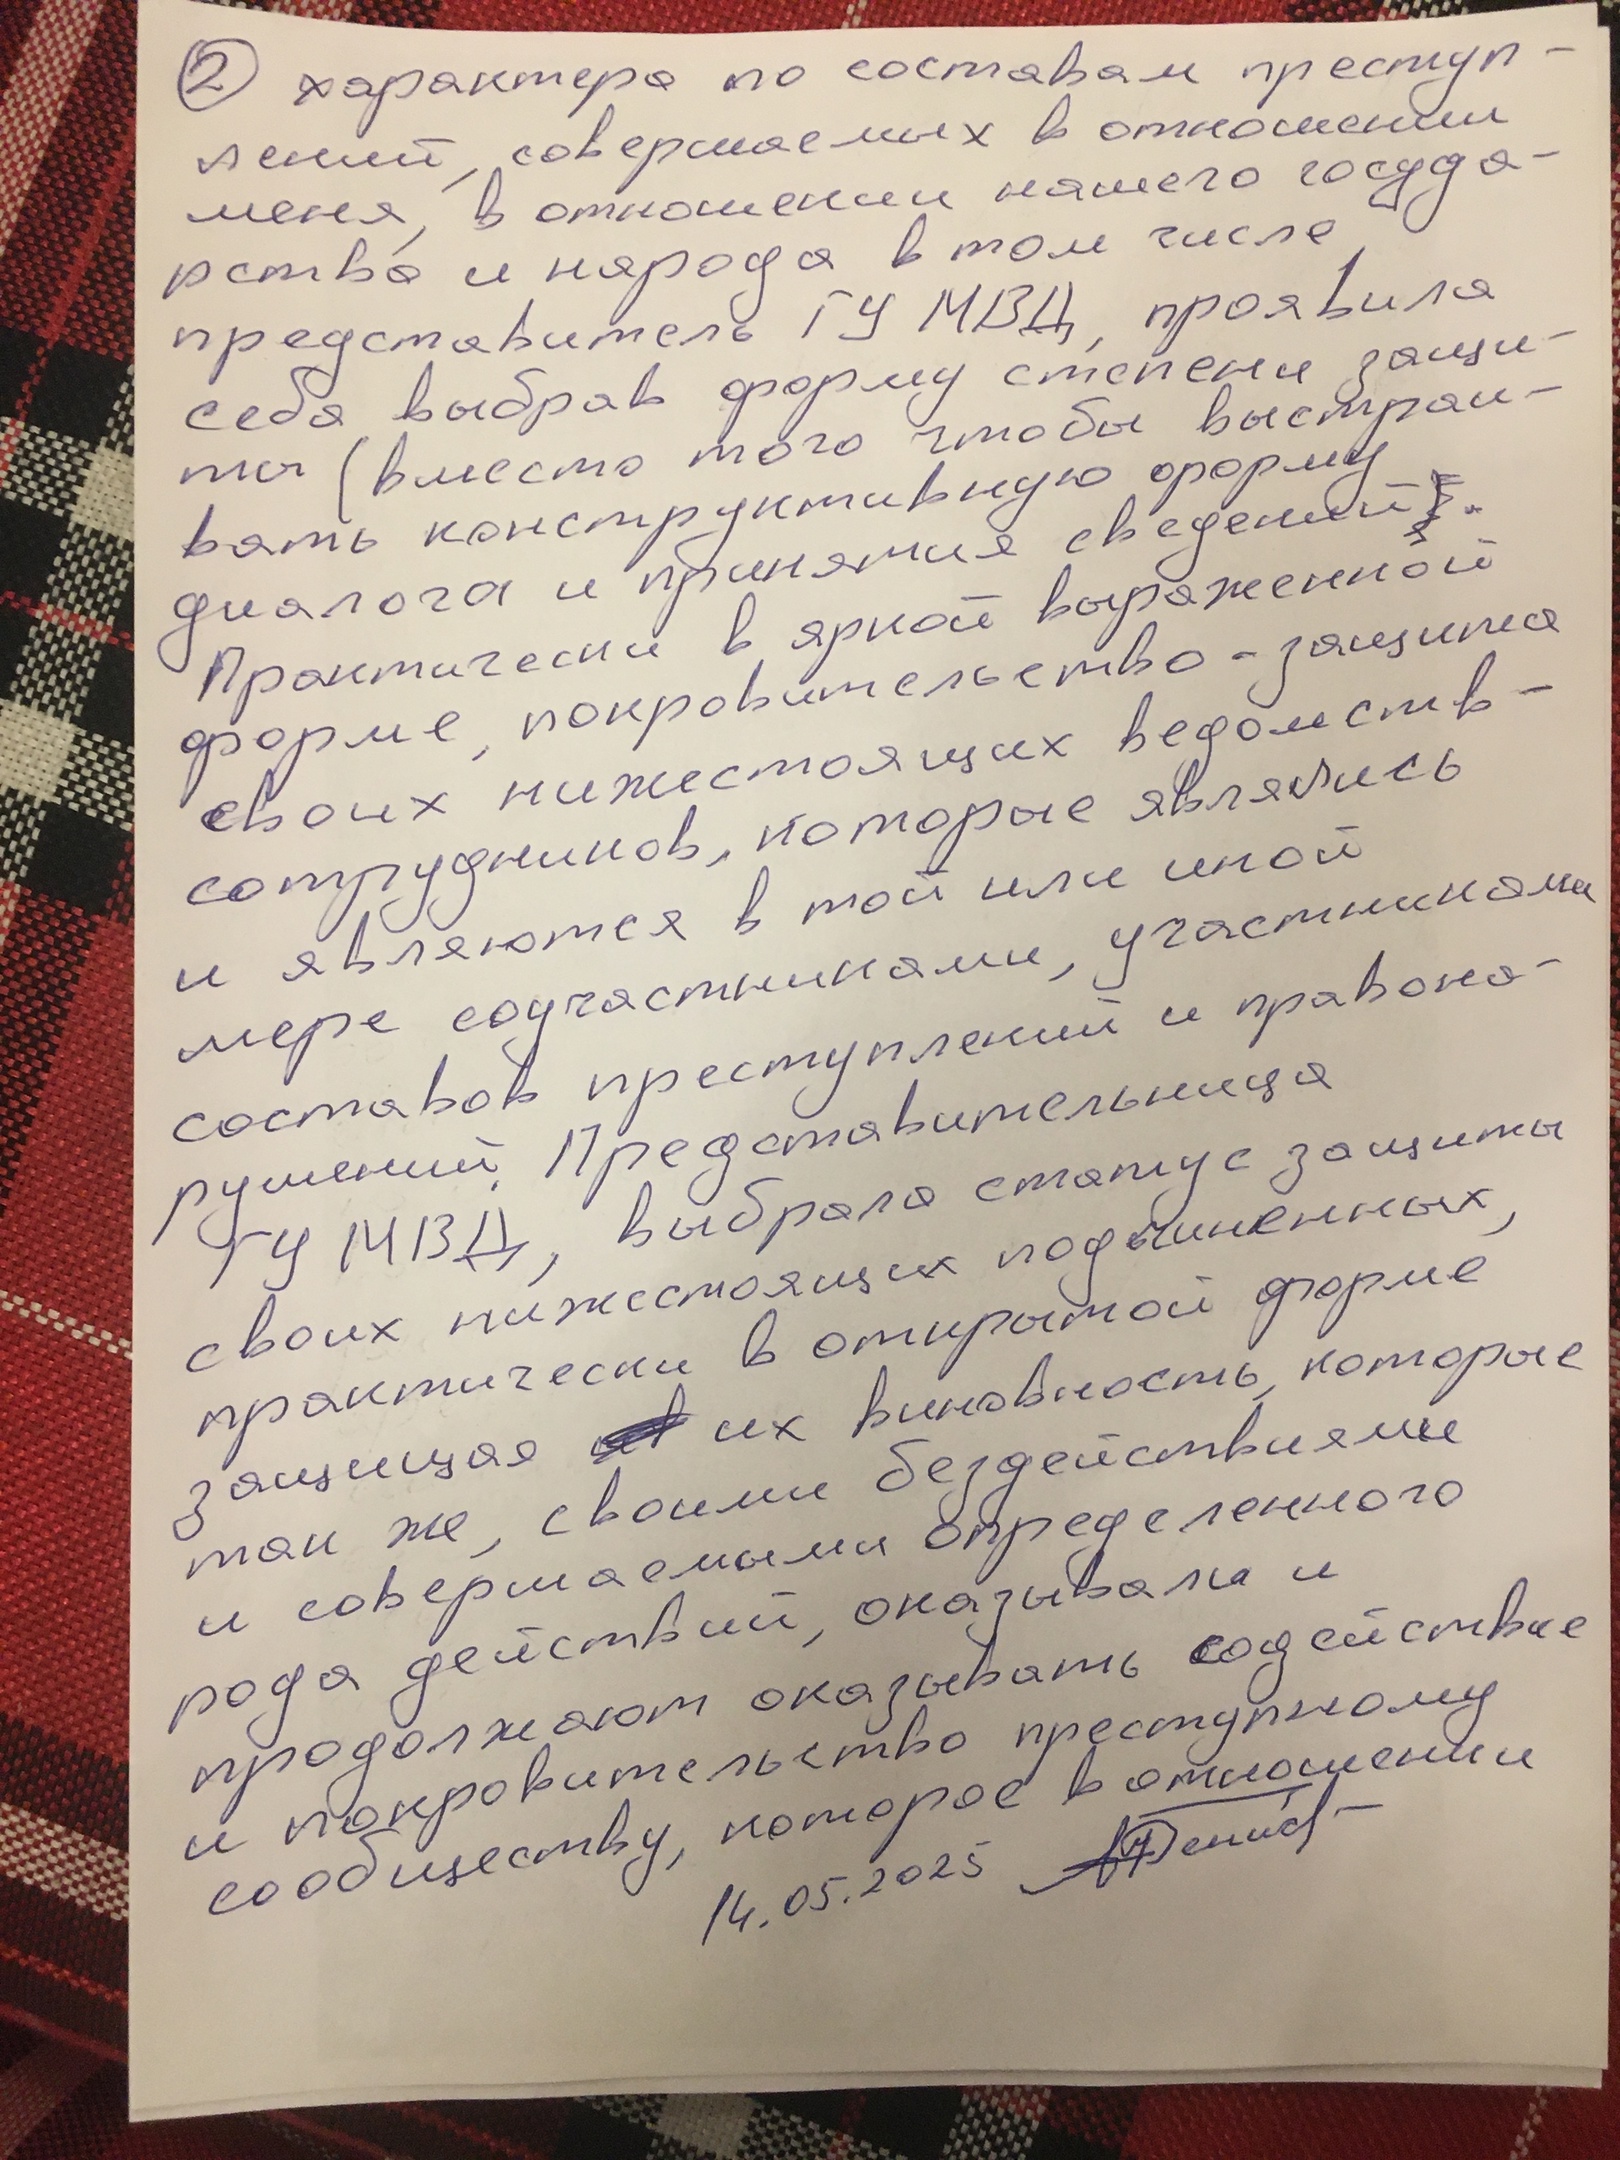 2 характера по составам преступ-
лений, совершаемых в отношении
меня, в отношении нашего госуда-
рства и народа в том числе,
представитель ГУ МВД, проявила
себя выбрав форму степени защи-
ты (вместо того чтобы выстраи-
вать конструктивную форму
диалога и принятия сведений).
Практически в яркой выраженной
форме, покровительство-защита
своих нижестоящих ведомств-
сотрудников, которые являлись
и являются в той или иной
мере соучастниками, участниками
составов преступлений и правона-
рушений. Представительница
ГУ МВД, выбрала статус защиты
своих нижестоящих подчиненных,
практически в открытой форме
защищая их виновность, которые
так же, своими бездействиями
и совершаемыми определенного
рода действий, оказывали и
продолжают оказывать содействие
и покровительство преступному
сообществу, которое в отношении
14.05.2025